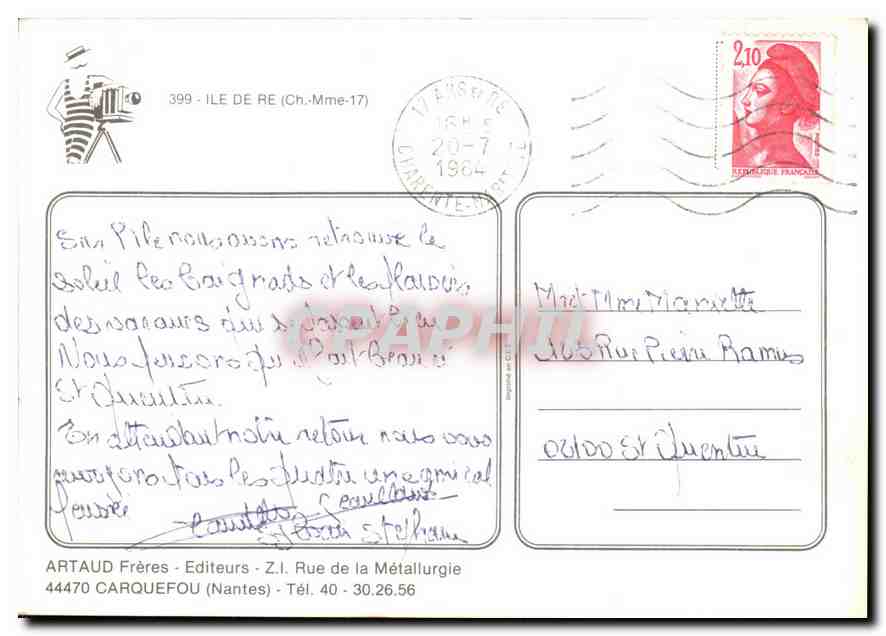 399 - ILE DE RE (Ch.-Mme-17)
17 ARS EN RE
18H
20-7
1984
CHARENTE-MARIT
2,10
REPUBLIQUE FRANÇAISE
Sur l'ile nous avons retrouvé le
soleil les baignads et les plaisirs
des vacances qui
Nous pensons qu'il fait beau à
St Quentin.
En attendant notre retour nous vous
envoyons tous les quatre une amical
pensée
Stéphane
Mr et Mme Mariette
103 Rue Pierre Ramus
02100 St Quentin
Imprimé en C.E.E.
CPAPHIL
ARTAUD Frères - Editeurs - Z.I. Rue de la Métallurgie
44470 CARQUEFOU (Nantes) - Tél. 40 - 30.26.56